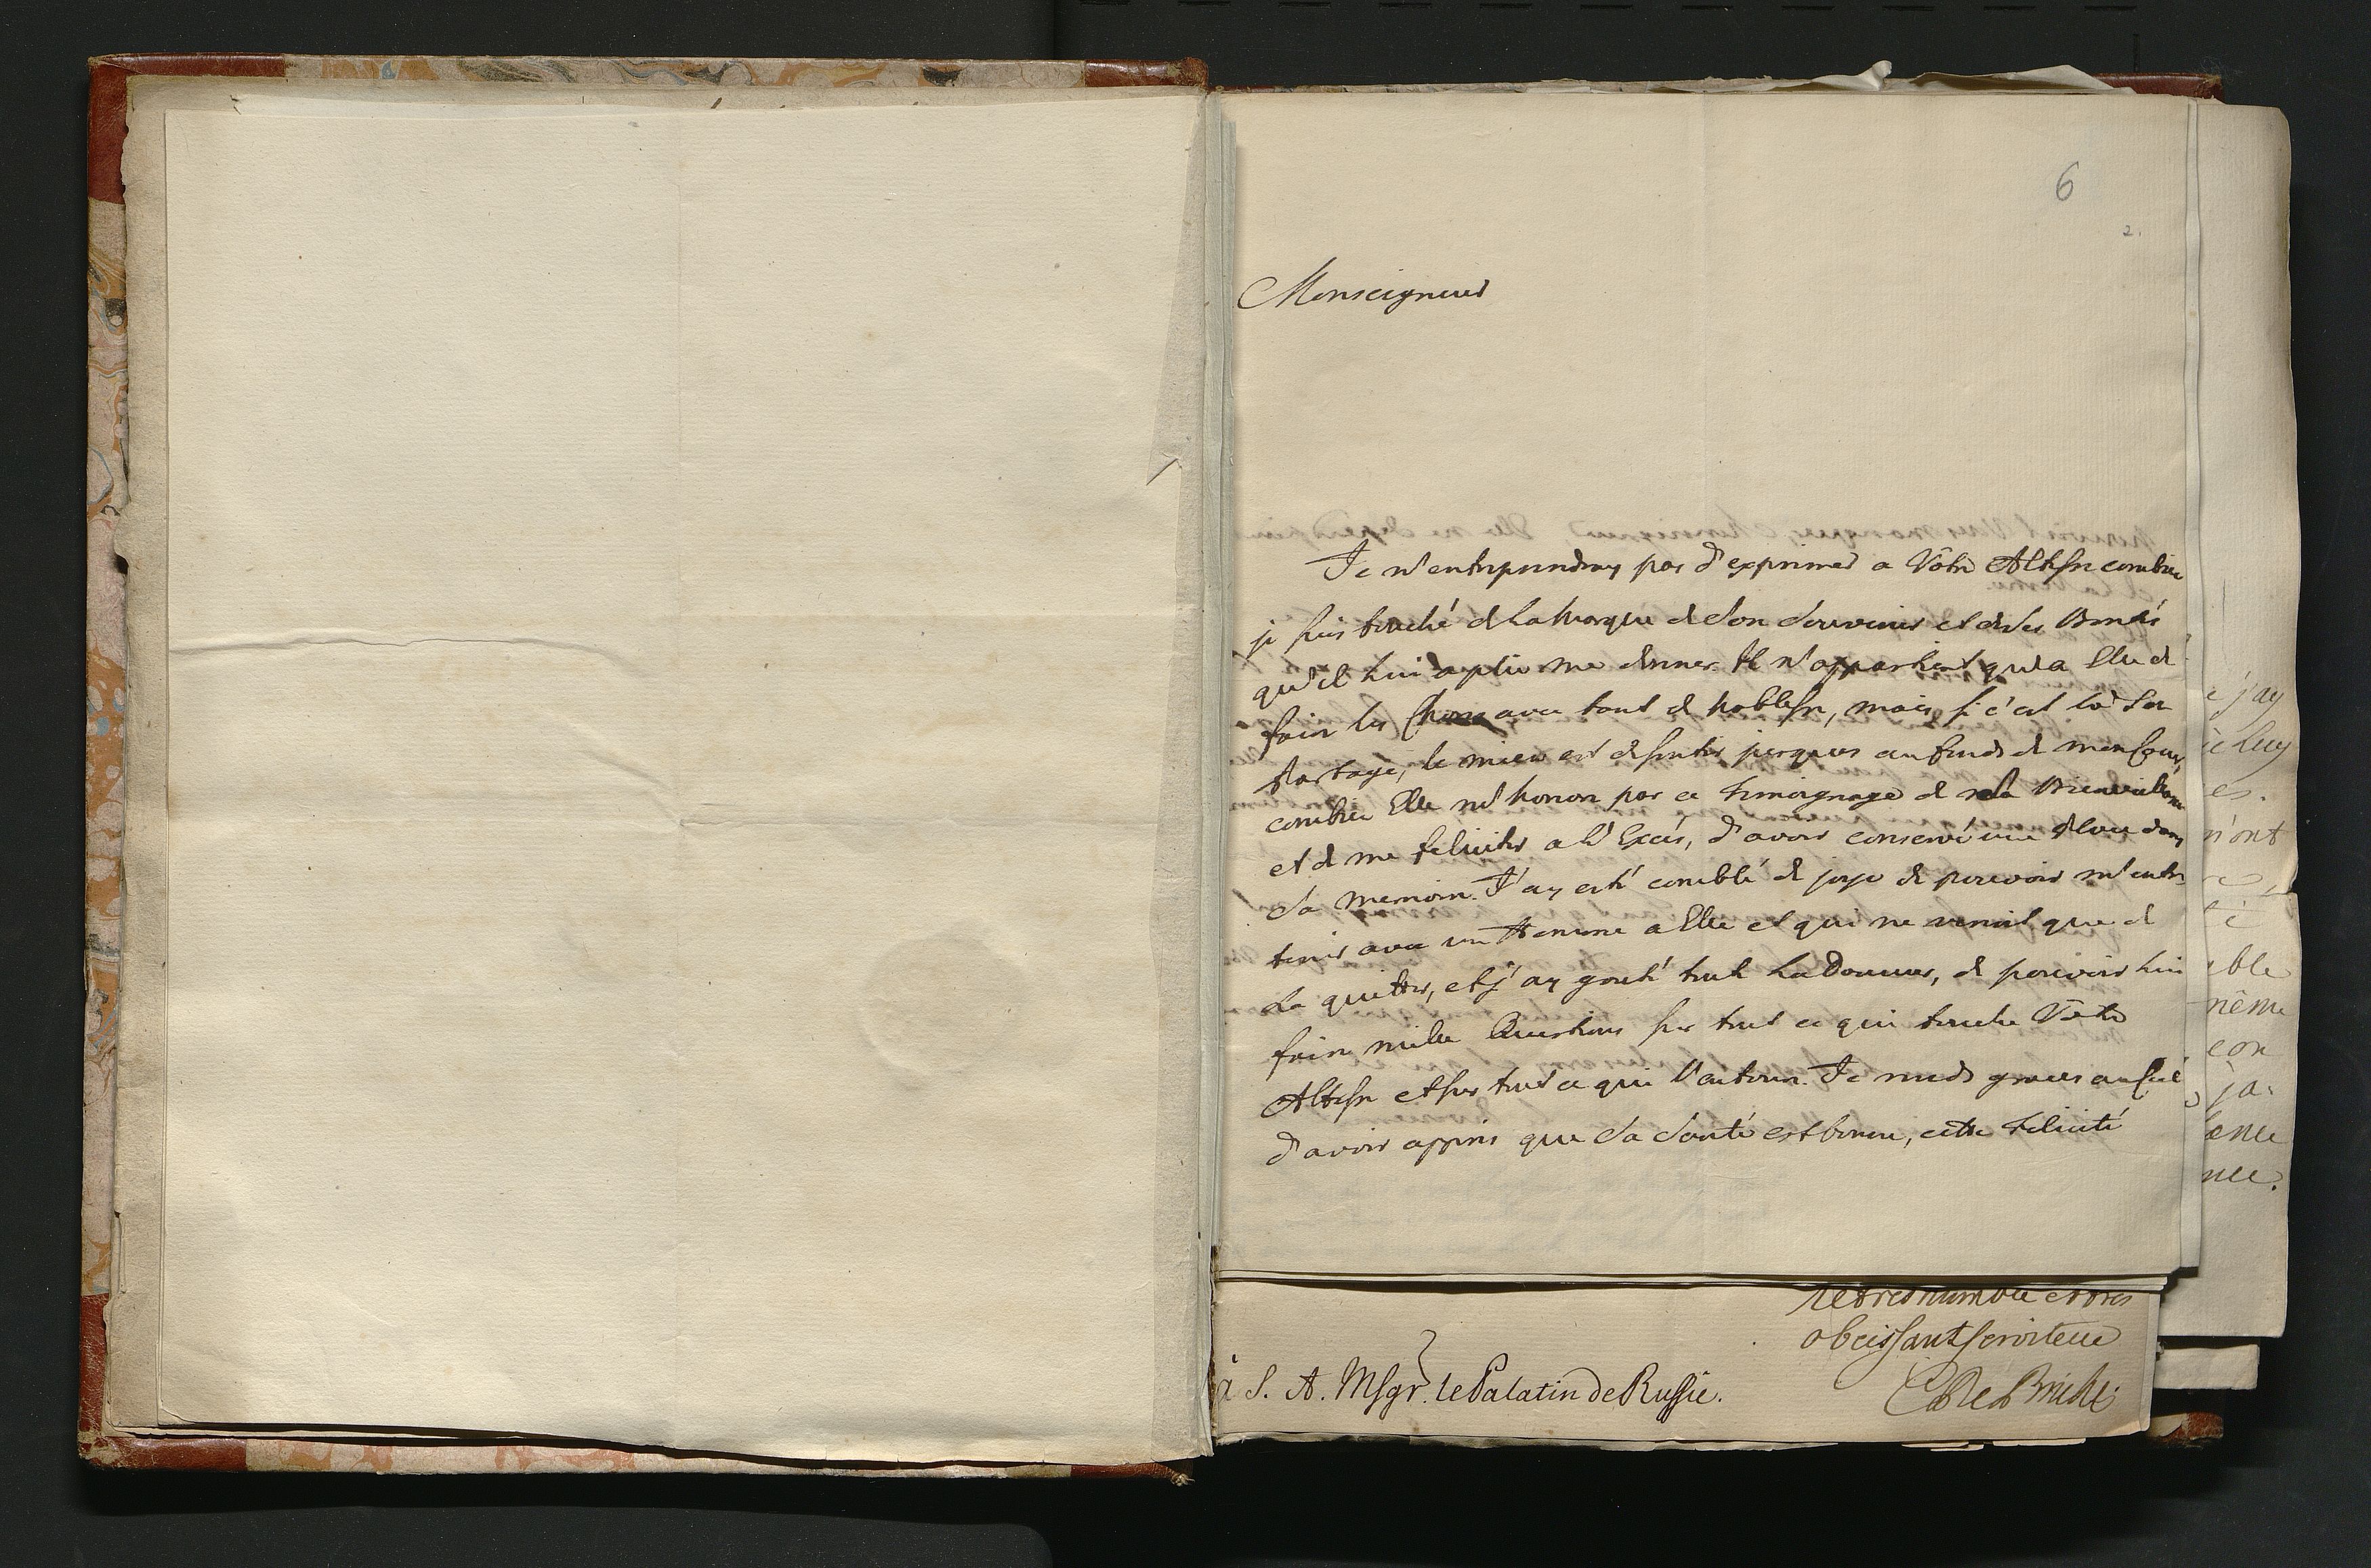 6
2.
Monseigneur
Je n'entreprendray pas d'exprimer a Vôtre Altesse combien
je suis touché de la Marque de son souvenir et de ses Bontés
qu'il lui a plu me donner. Il n'appartient qu'a Elle de
faire les choses avec tant de Noblesse, mais si c'est là son
Partage, le mien est de sentir jusques au fonds de mon Coeur,
combien Elle m'honore par ce temoignage de sa Bienveillance
et de me feliciter a l'Excés, d'avoir conservé une Place dans
sa memoire. J'ay esté comblé de joye de pouvoir m'entre-
tenir avec un Homme a Elle et qui ne venoit que de
La quitter, et j'ay gouté toute La Douceur, de pouvoir lui
faire mille Questions sur tout ce qui touche Vôtre
Altesse et sur tout ce qui l'entoure. Je rends graces au Ciel
d'avoir appris que sa santé est bonne, cette Felicité
le tres humble et tres
obeissant serviteur
à S. A. Msgr. le Palatin de Russie.
C de Brühl
e j'ay
és.
n'ont
ble
même
con
ja-
nce.